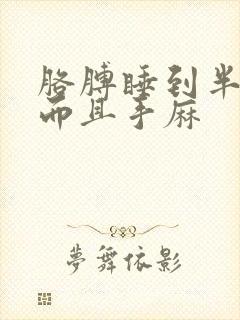 胳膊睡到半
而且手麻
夢舞依影